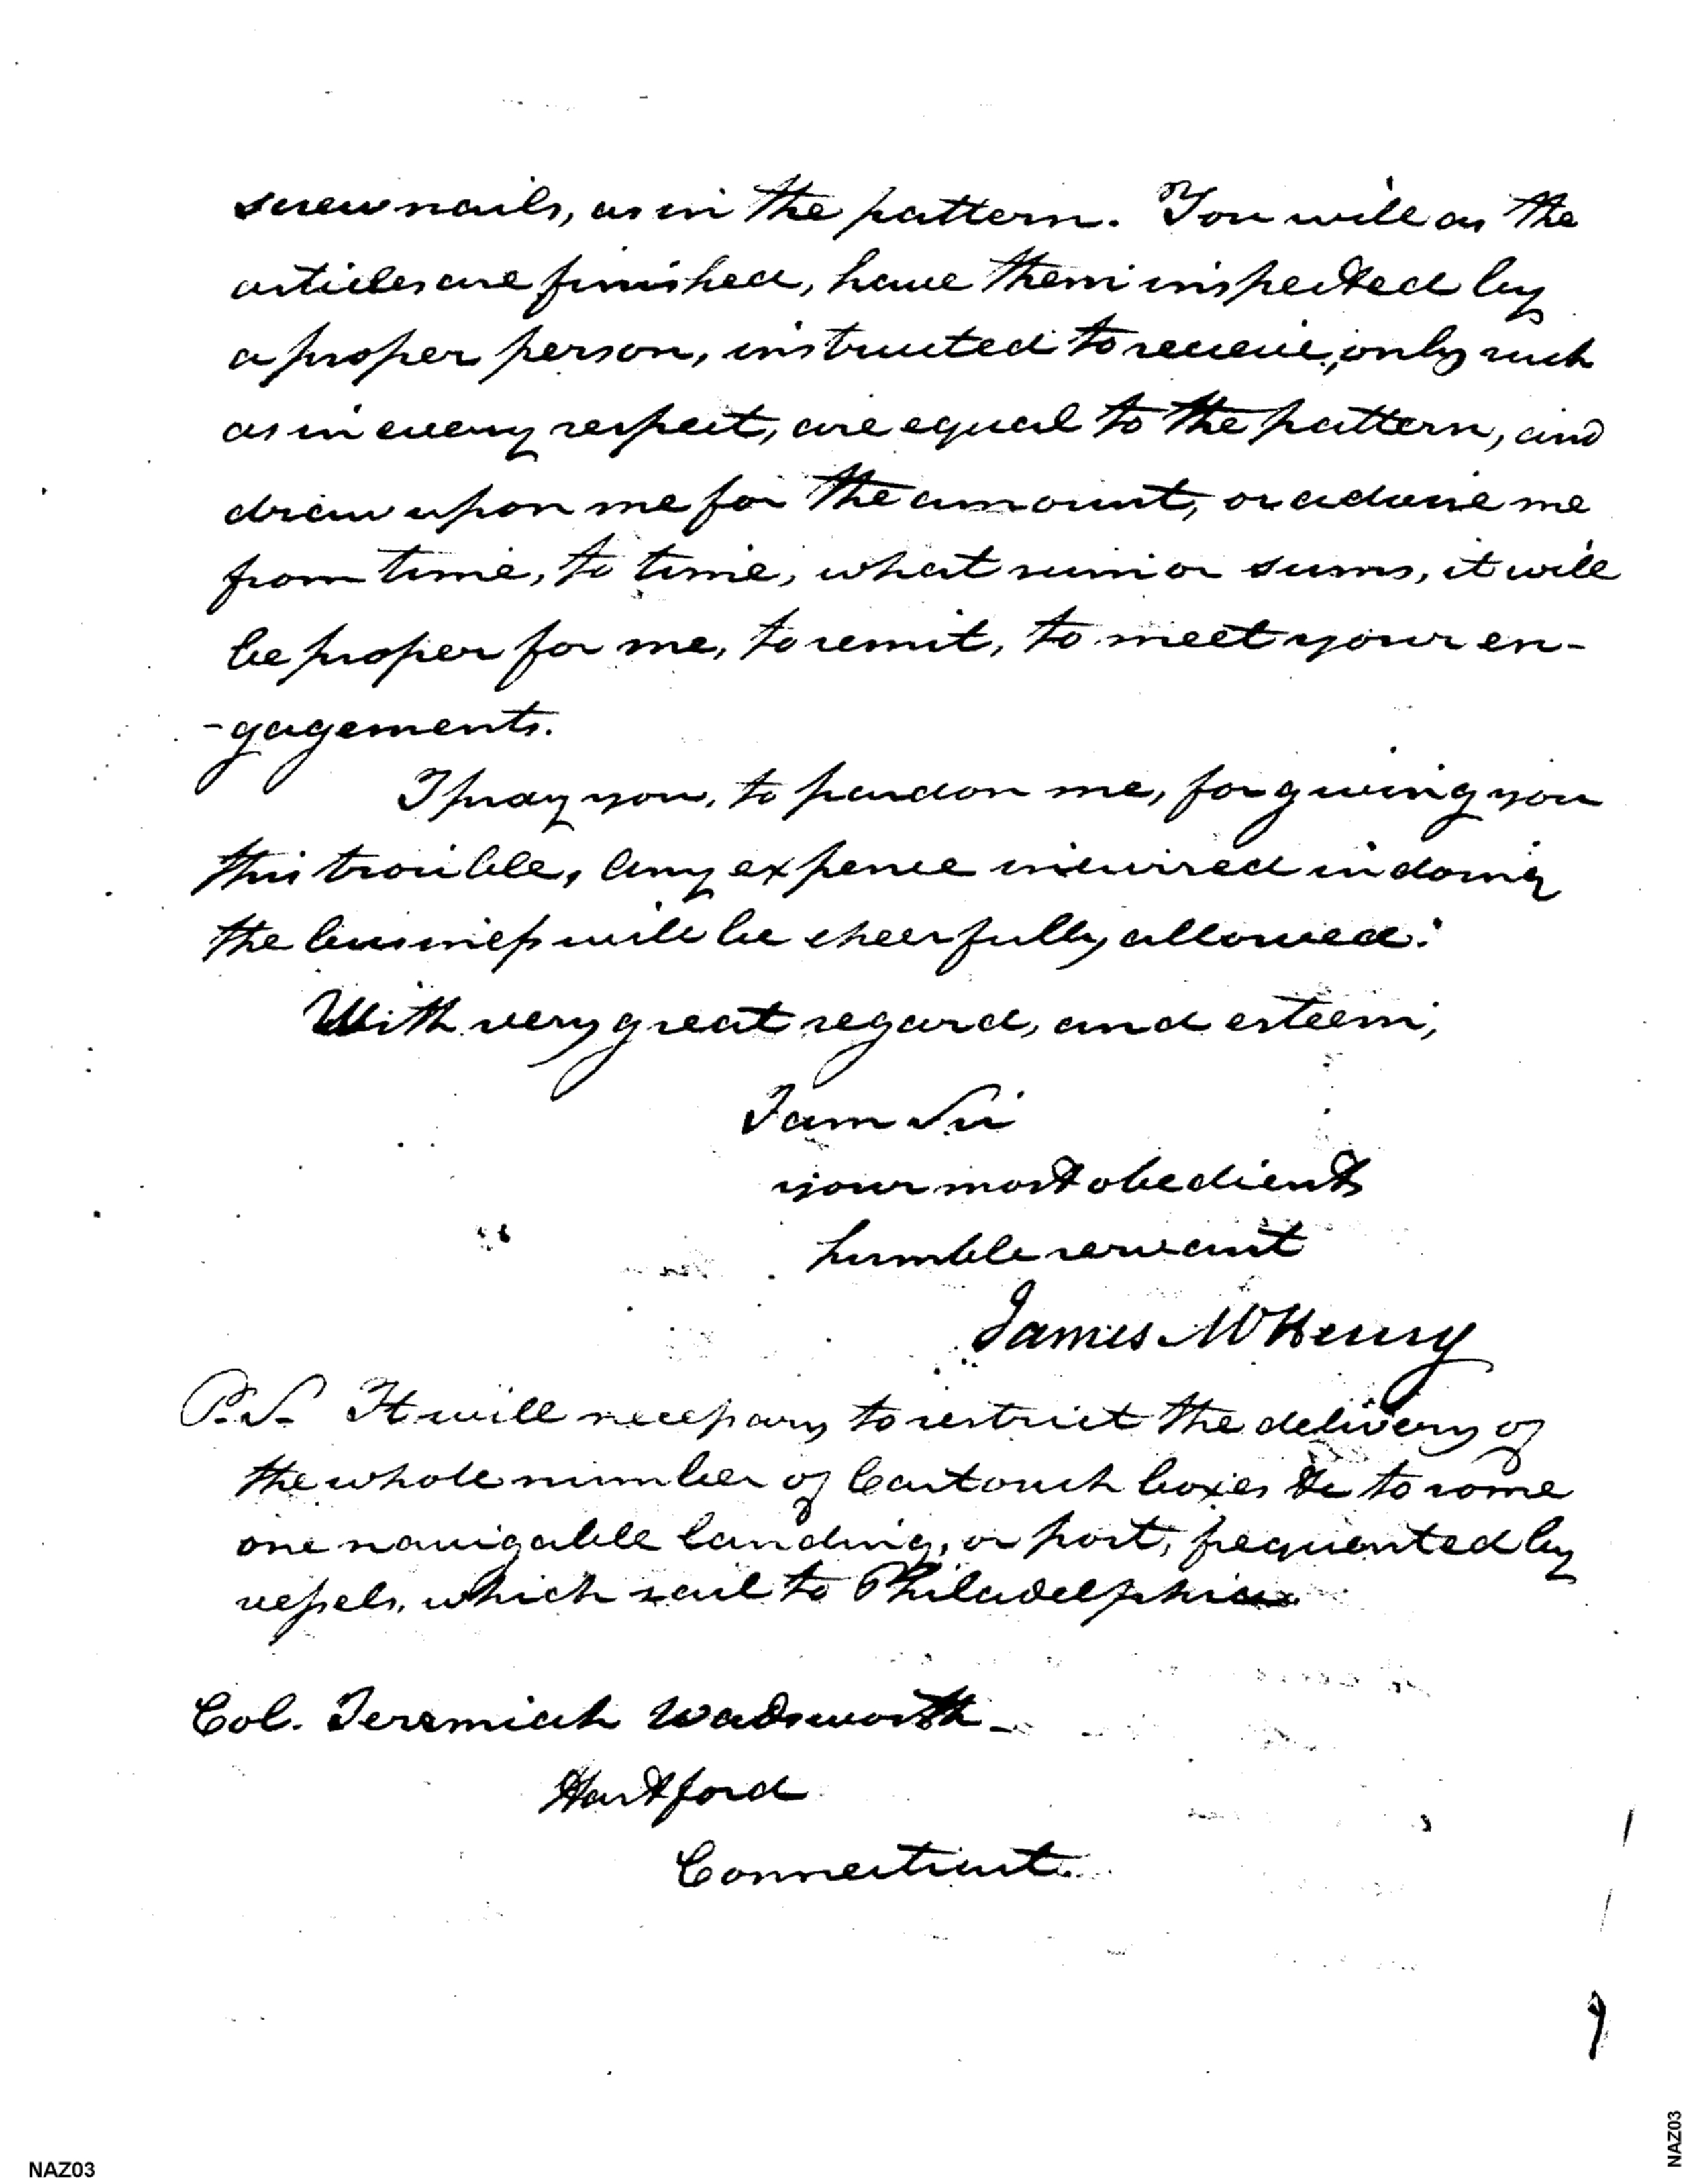 screw nails, as in the pattern. You will as the
articles are finished, have them inspected by
a proper person, instructed to receive, only such
as in every respect, are equal to the pattern, and
draw upon me for the amount, or advise me
from time, to time, what sum or sums, it will
be proper for me, to remit, to meet your en-
-gagements.
I pray you, to pardon me, for giving you
this trouble, any expence incurred in doing
the business will be cheerfully allowed.
With very great regard, and esteem,
I am Sir
your most obedient
humble servant
James McHenry
P.S. It will necessary to restrict the delivery of
the whole number of Cartouch boxes &c to some
one navigable landing, or port, frequented by
vessels, which sail to Philadelphia.
Col. Jeremiah Wadsworth
Hartford
Connecticut.
NAZ03
NAZ03